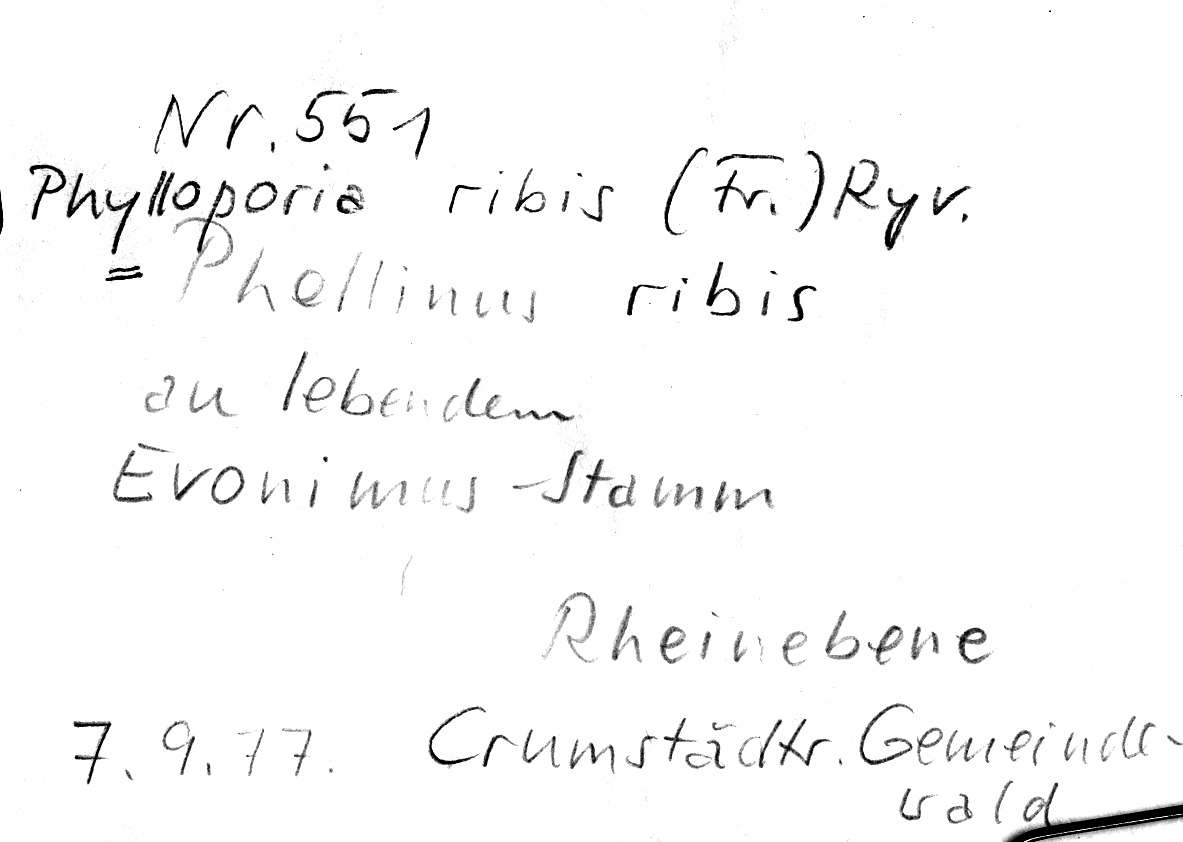 Nr. 551
Phylloporia ribis (Fr.) Ryv.
= Phellinus ribis
an lebendem
Evonimus-Stamm
Rheinebene
7.9.77. Crumstädtr. Gemeinde-
wald